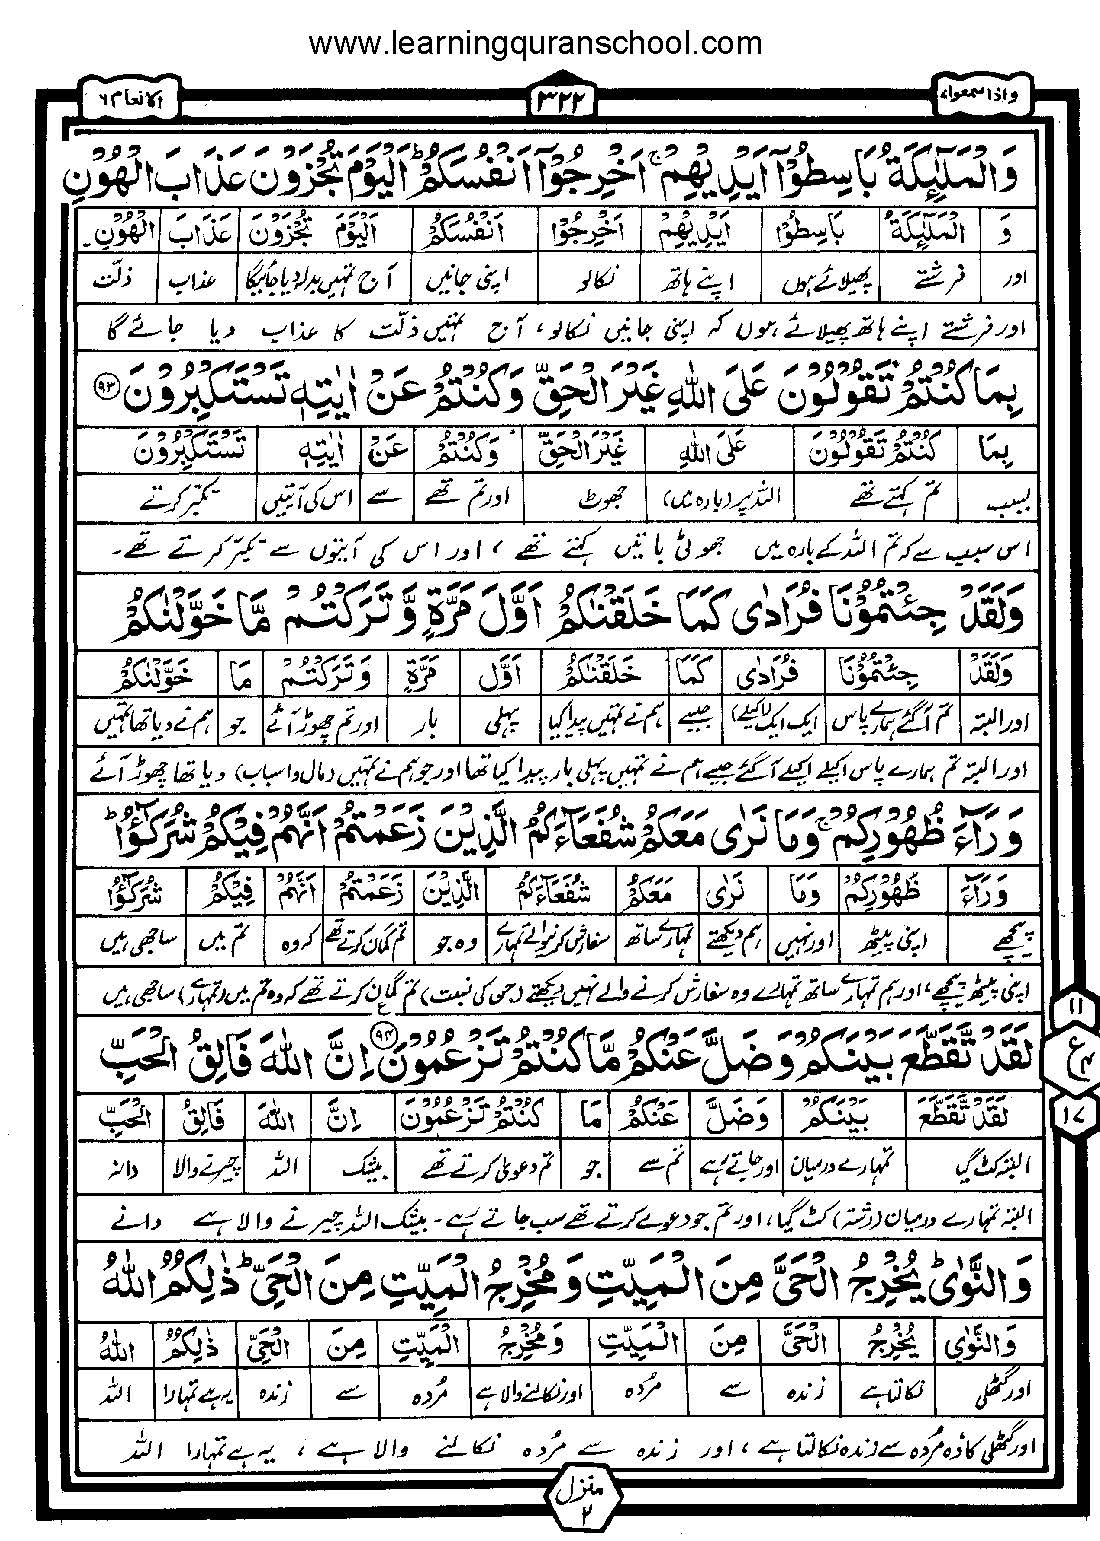 www.learningquranschool.com
واذا سمعوا، ۳۲۲ الانعام ۶
وَالْمَلٰٓئِكَةُ بَاسِطُوْٓا اَيْدِيْهِمْ ۚ اَخْرِجُوْٓا اَنْفُسَكُمْ ؕ اَلْيَوْمَ تُجْزَوْنَ عَذَابَ الْهُوْنِ
وَ الْمَلٰٓئِكَةُ بَاسِطُوْٓا اَيْدِيْهِمْ اَخْرِجُوْٓا اَنْفُسَكُمْ اَلْيَوْمَ تُجْزَوْنَ عَذَابَ الْهُوْنِ
اور فرشتے پھیلائے ہوں اپنے ہاتھ نکالو اپنی جانیں آج تمہیں بدلہ دیا جائیگا عذاب ذلّت
اور فرشتے اپنے ہاتھ پھیلائے ہوں کہ اپنی جانیں نکالو، آج تمہیں ذلّت کا عذاب دیا جائے گا
بِمَا كُنْتُمْ تَقُوْلُوْنَ عَلَى اللّٰهِ غَيْرَ الْحَقِّ وَكُنْتُمْ عَنْ اٰيٰتِهٖ تَسْتَكْبِرُوْنَ ﴿۹۳﴾
بِمَا كُنْتُمْ تَقُوْلُوْنَ عَلَى اللّٰهِ غَيْرَ الْحَقِّ وَكُنْتُمْ عَنْ اٰيٰتِهٖ تَسْتَكْبِرُوْنَ
بسبب تم کہتے تھے اللہ پر (بارہ میں) جھوٹ اور تم تھے سے اس کی آیتیں تکبّر کرتے
اس سبب سے کہ تم اللہ کے بارہ میں جھوٹی باتیں کہتے تھے، اور اس کی آیتوں سے تکبّر کرتے تھے۔
وَلَقَدْ جِئْتُمُوْنَا فُرَادٰى كَمَا خَلَقْنٰكُمْ اَوَّلَ مَرَّةٍ وَّتَرَكْتُمْ مَّا خَوَّلْنٰكُمْ
وَلَقَدْ جِئْتُمُوْنَا فُرَادٰى كَمَا خَلَقْنٰكُمْ اَوَّلَ مَرَّةٍ وَّتَرَكْتُمْ مَا خَوَّلْنٰكُمْ
اور البتہ تم آگئے ہمارے پاس ایک ایک (اکیلے) جیسے ہم نے تمہیں پیدا کیا پہلی بار اور تم چھوڑ آئے جو ہم نے دیا تھا تمہیں
اور البتہ تم ہمارے پاس اکیلے اکیلے آگئے جیسے ہم نے تمہیں پہلی بار پیدا کیا تھا اور جو ہم نے تمہیں (مال و اسباب) دیا تھا چھوڑ آئے
وَرَآءَ ظُهُوْرِكُمْ ۚ وَمَا نَرٰى مَعَكُمْ شُفَعَآءَكُمُ الَّذِيْنَ زَعَمْتُمْ اَنَّهُمْ فِيْكُمْ شُرَكٰٓؤُا ؕ
وَرَآءَ ظُهُوْرِكُمْ وَمَا نَرٰى مَعَكُمْ شُفَعَآءَكُمُ الَّذِيْنَ زَعَمْتُمْ اَنَّهُمْ فِيْكُمْ شُرَكٰٓؤُا
پیچھے اپنی پیٹھ اور نہیں ہم دیکھتے تمہارے ساتھ سفارش کرنیوالے تمہارے وہ جو تم گمان کرتے تھے کہ وہ تم میں ساجھی ہیں
اپنی پیٹھ پیچھے، اور ہم تمہارے ساتھ تمہارے وہ سفارش کرنے والے نہیں دیکھتے (جن کی نسبت) تم گمان کرتے تھے کہ وہ تم میں (تمہارے) ساجھی ہیں
۱۱
لَقَدْ تَّقَطَّعَ بَيْنَكُمْ وَضَلَّ عَنْكُمْ مَّا كُنْتُمْ تَزْعُمُوْنَ ﴿۹۴﴾ اِنَّ اللّٰهَ فَالِقُ الْحَبِّ
ع ۴
۱۷
لَقَدْ تَّقَطَّعَ بَيْنَكُمْ وَضَلَّ عَنْكُمْ مَا كُنْتُمْ تَزْعُمُوْنَ اِنَّ اللّٰهَ فَالِقُ الْحَبِّ
البتہ کٹ گیا تمہارے درمیان اور جاتے رہے تم سے جو تم دعویٰ کرتے تھے بیشک اللہ چیرنے والا دانہ
البتہ تمہارے درمیان (رشتہ) کٹ گیا، اور تم جو دعوے کرتے تھے سب جاتے رہے۔ بیشک اللہ چیرنے والا ہے دانے
وَالنَّوٰى ؕ يُخْرِجُ الْحَيَّ مِنَ الْمَيِّتِ وَمُخْرِجُ الْمَيِّتِ مِنَ الْحَيِّ ؕ ذٰلِكُمُ اللّٰهُ
وَالنَّوٰى يُخْرِجُ الْحَيَّ مِنَ الْمَيِّتِ وَمُخْرِجُ الْمَيِّتِ مِنَ الْحَيِّ ذٰلِكُمُ اللّٰهُ
اور گٹھلی نکالتا ہے زندہ سے مُردہ اور نکالنے والا ہے مُردہ سے زندہ یہ ہے تمہارا اللہ
اور گٹھلی کا، وہ مُردہ سے زندہ نکالتا ہے، اور زندہ سے مُردہ نکالنے والا ہے، یہ ہے تمہارا اللہ
منزل
۲